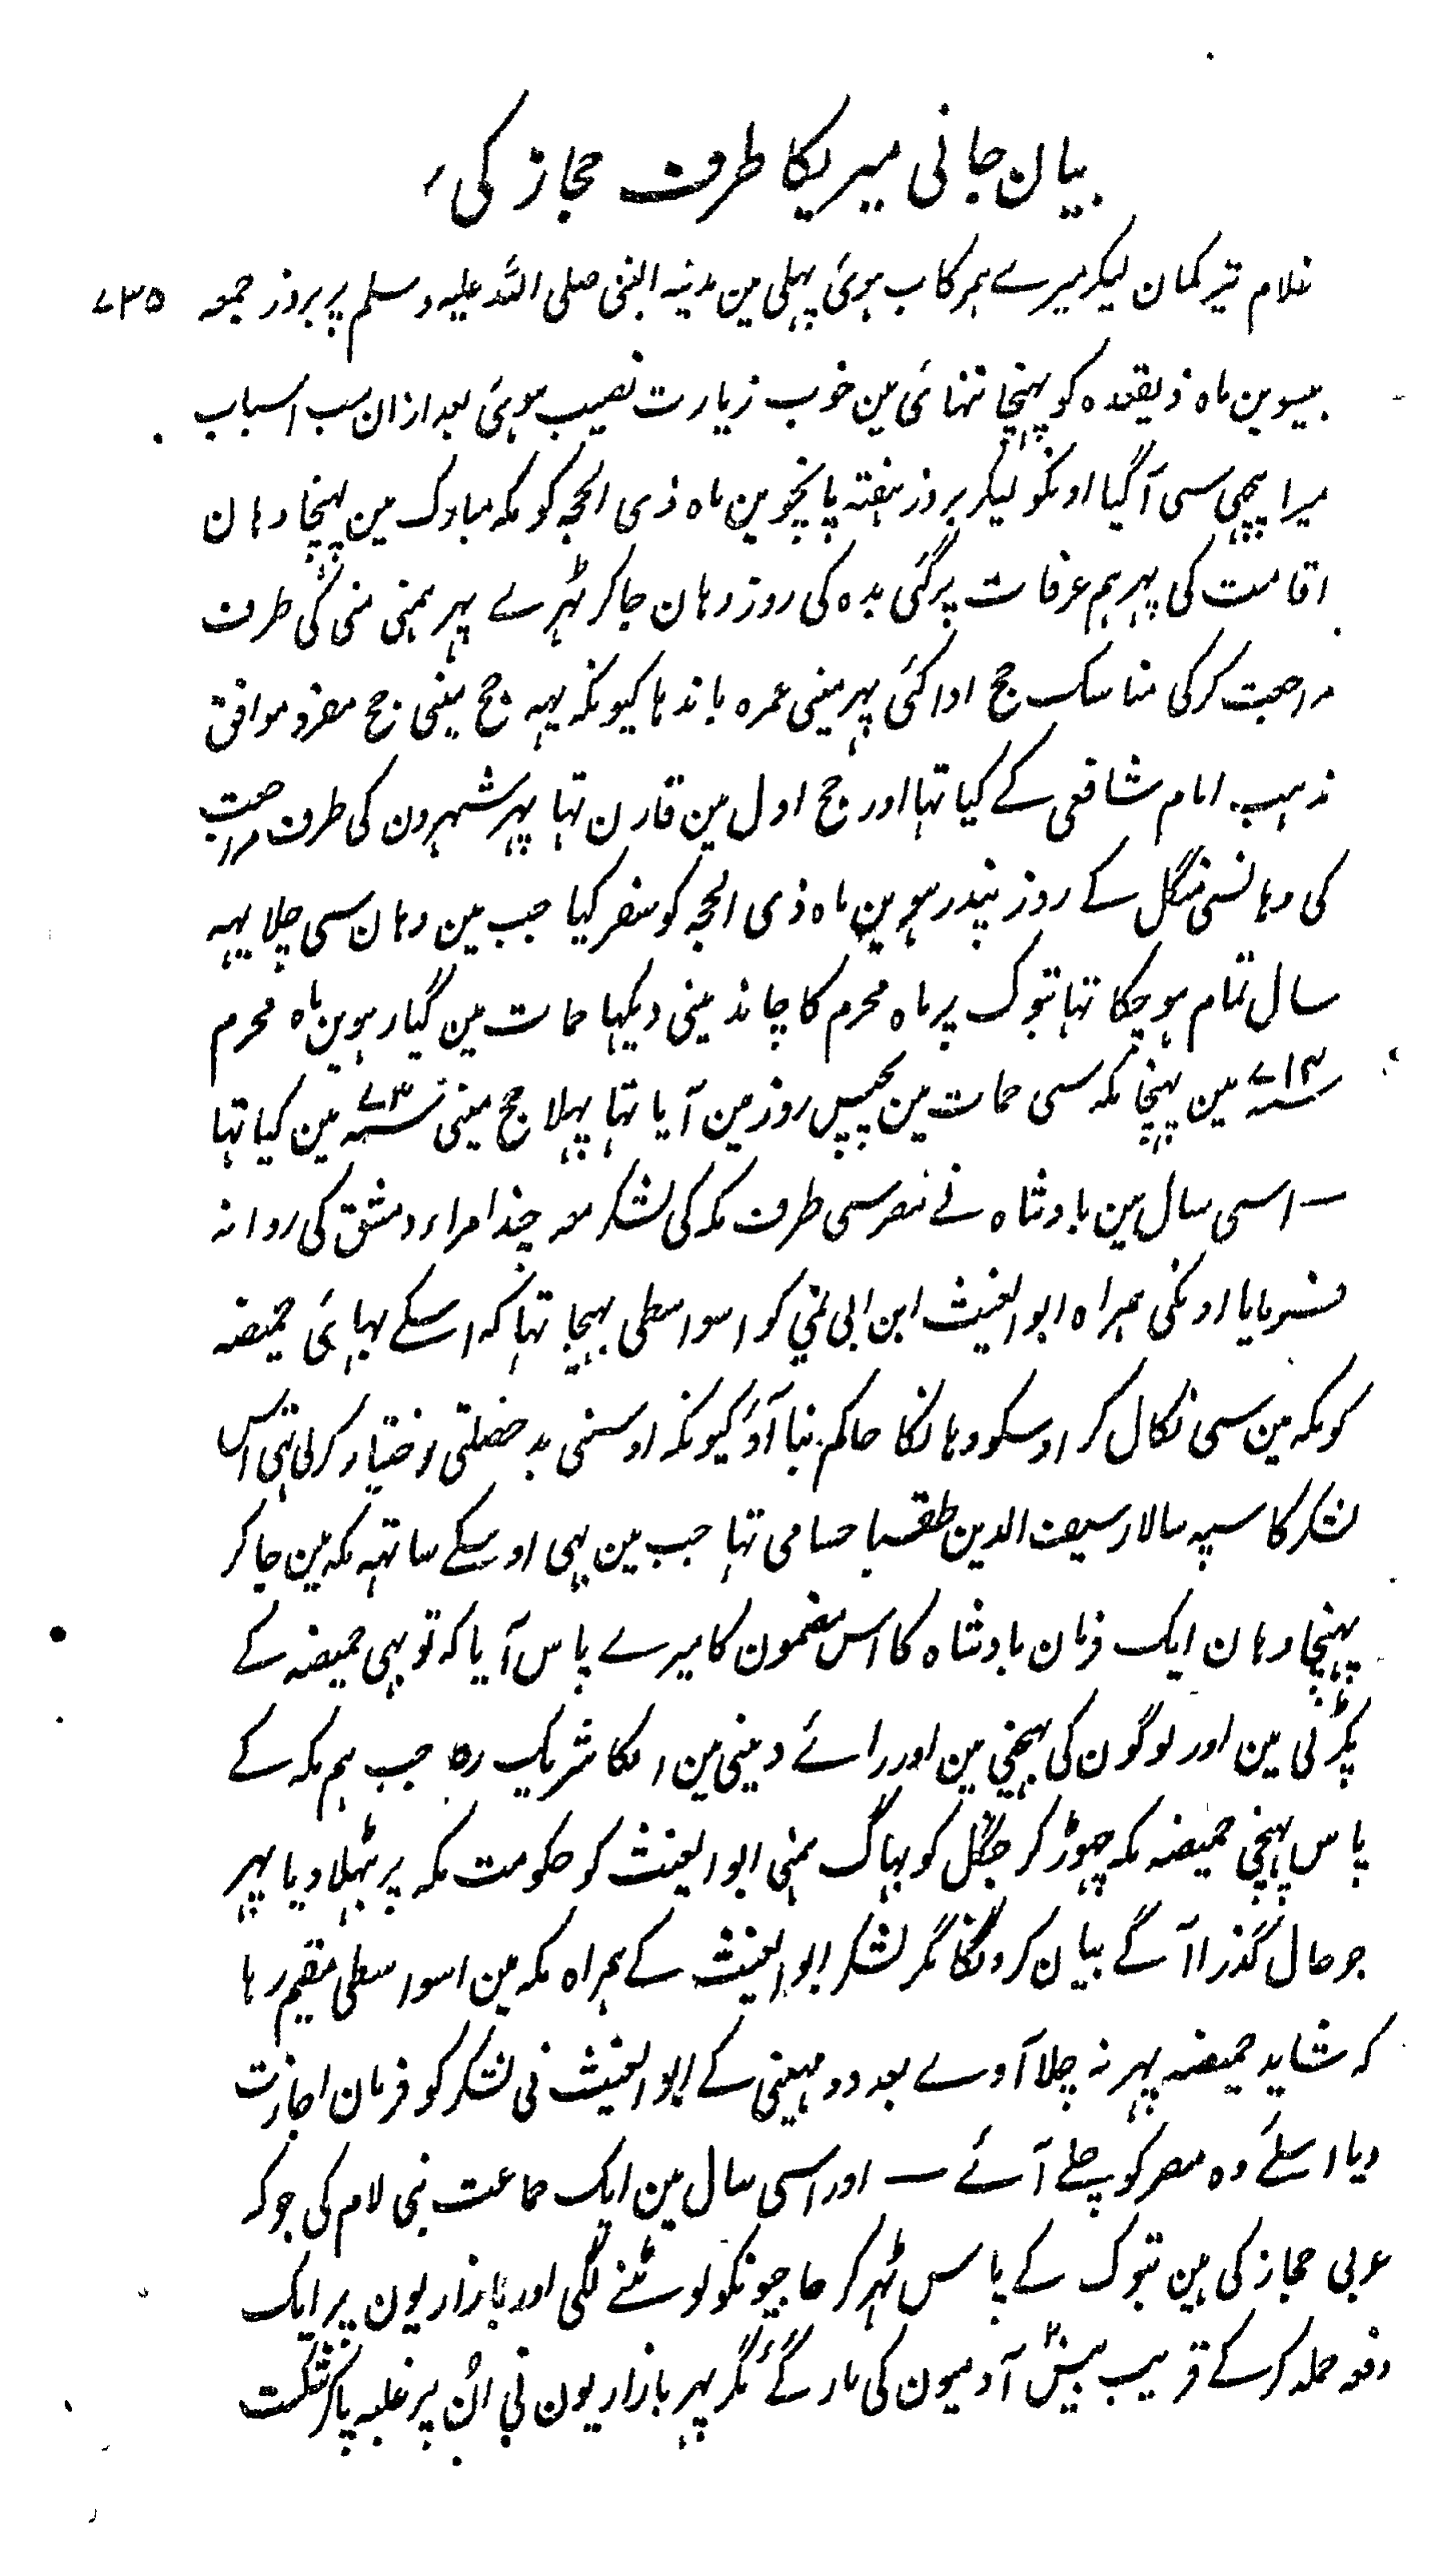 بیان جانی میریکا طرف حجاز کی
غلام تیر کمان لیکر میرے ہمرکاب ہوئ پہلی مین مدینہ النبی صلی اللہ علیہ وسلم پر بروز جمعہ ۷۳۵
بیسوین ماہ ذیقعدہ کو پہنچا تنہائی مین خوب زیارت نصیب ہوئی بعد ازان سب اسباب
میرا پیچہی سی آگیا اونکو لیکر بروز ہفتہ پانچوین ماہ ذی الحجہ کو مکہ مبارک مین پہنچا وہان
اقامت کی پہر ہم عرفات پر گئی بدہ کی روز وہان جاکر ٹہرے پہر ہمنی منی کی طرف
مراجعت کرکی مناسک حج ادا کئی پہر مینی عمرہ باندہا کیونکہ یہہ حج مینی حج مفرد موافق
مذہب امام شافعی کے کیا تہا اور حج اول مین قارن تہا پہر شہرون کی طرف مراجعت
کی وہانسی منگل کے روز پندرہوین ماہ ذی الحجہ کو سفر کیا جب مین وہان سی چلا یہہ
سال تمام ہوچکا تہا تبوک پر ماہ محرم کا چاند مینی دیکہا حمات مین گیارہوین ماہ محرم
۷۱۴ مین پہنچا مکہ سی حمات مین پچیس روز مین آیا تہا پہلا حج مینی ۷۳ مین کیا تہا
— اسی سال مین بادشاہ نے مصر سی طرف مکہ کی لشکر معہ چند امراء دمشق کی روانہ
فرمایا اونکی ہمراہ ابو الغیث ابن ابی نمی کو اسواسطی بہیجا تہا کہ اسکے بہائی حمیضہ
کو مکہ مین سی نکال کر اوسکو وہانکا حاکم بنا آؤ کیونکہ اوسنی بد خصلتی اختیار کرلی تہی اس
لشکر کا سپہ سالار سیف الدین طقصبا حسامی تہا جب مین بہی اوسکے ساتہہ مکہ مین جاکر
پہنچا وہان ایک فرمان بادشاہ کا اس مضمون کا میرے پاس آیا کہ تو بہی حمیضہ کے
پکڑنی مین اور لوگون کی بہیجنی مین اور رائے دینی مین انکا شریک رہ جب ہم مکہ کے
پاس پہنچی حمیضہ مکہ چہوڑ کر جنگل کو بہاگ ہمنی ابو الغیث کو حکومت مکہ پر بٹہلا دیا پہر
جو حال گذرا آگے بیان کرونگا مگر لشکر ابو الغیث کے ہمراہ مکہ مین اسواسطی مقیم رہا
کہ شاید حمیضہ پہر نہ چلا آوے بعد دو مہینی کے ابو الغیث نی لشکر کو فرمان اجازت
دیا اسلئے وہ مصر کو چلے آئے — اور اسی سال مین ایک جماعت بنی لام کی جو کہ
عربی حجاز کی ہین تبوک کے پاس ٹہر کر حاجیونکو لوٹنے لگی اور بازاریون پر ایک
دفعہ حملہ کرکے قریب بیس آدمیون کی مار گئے مگر پہر بازاریون نی ان پر غلبہ پاکر شکست